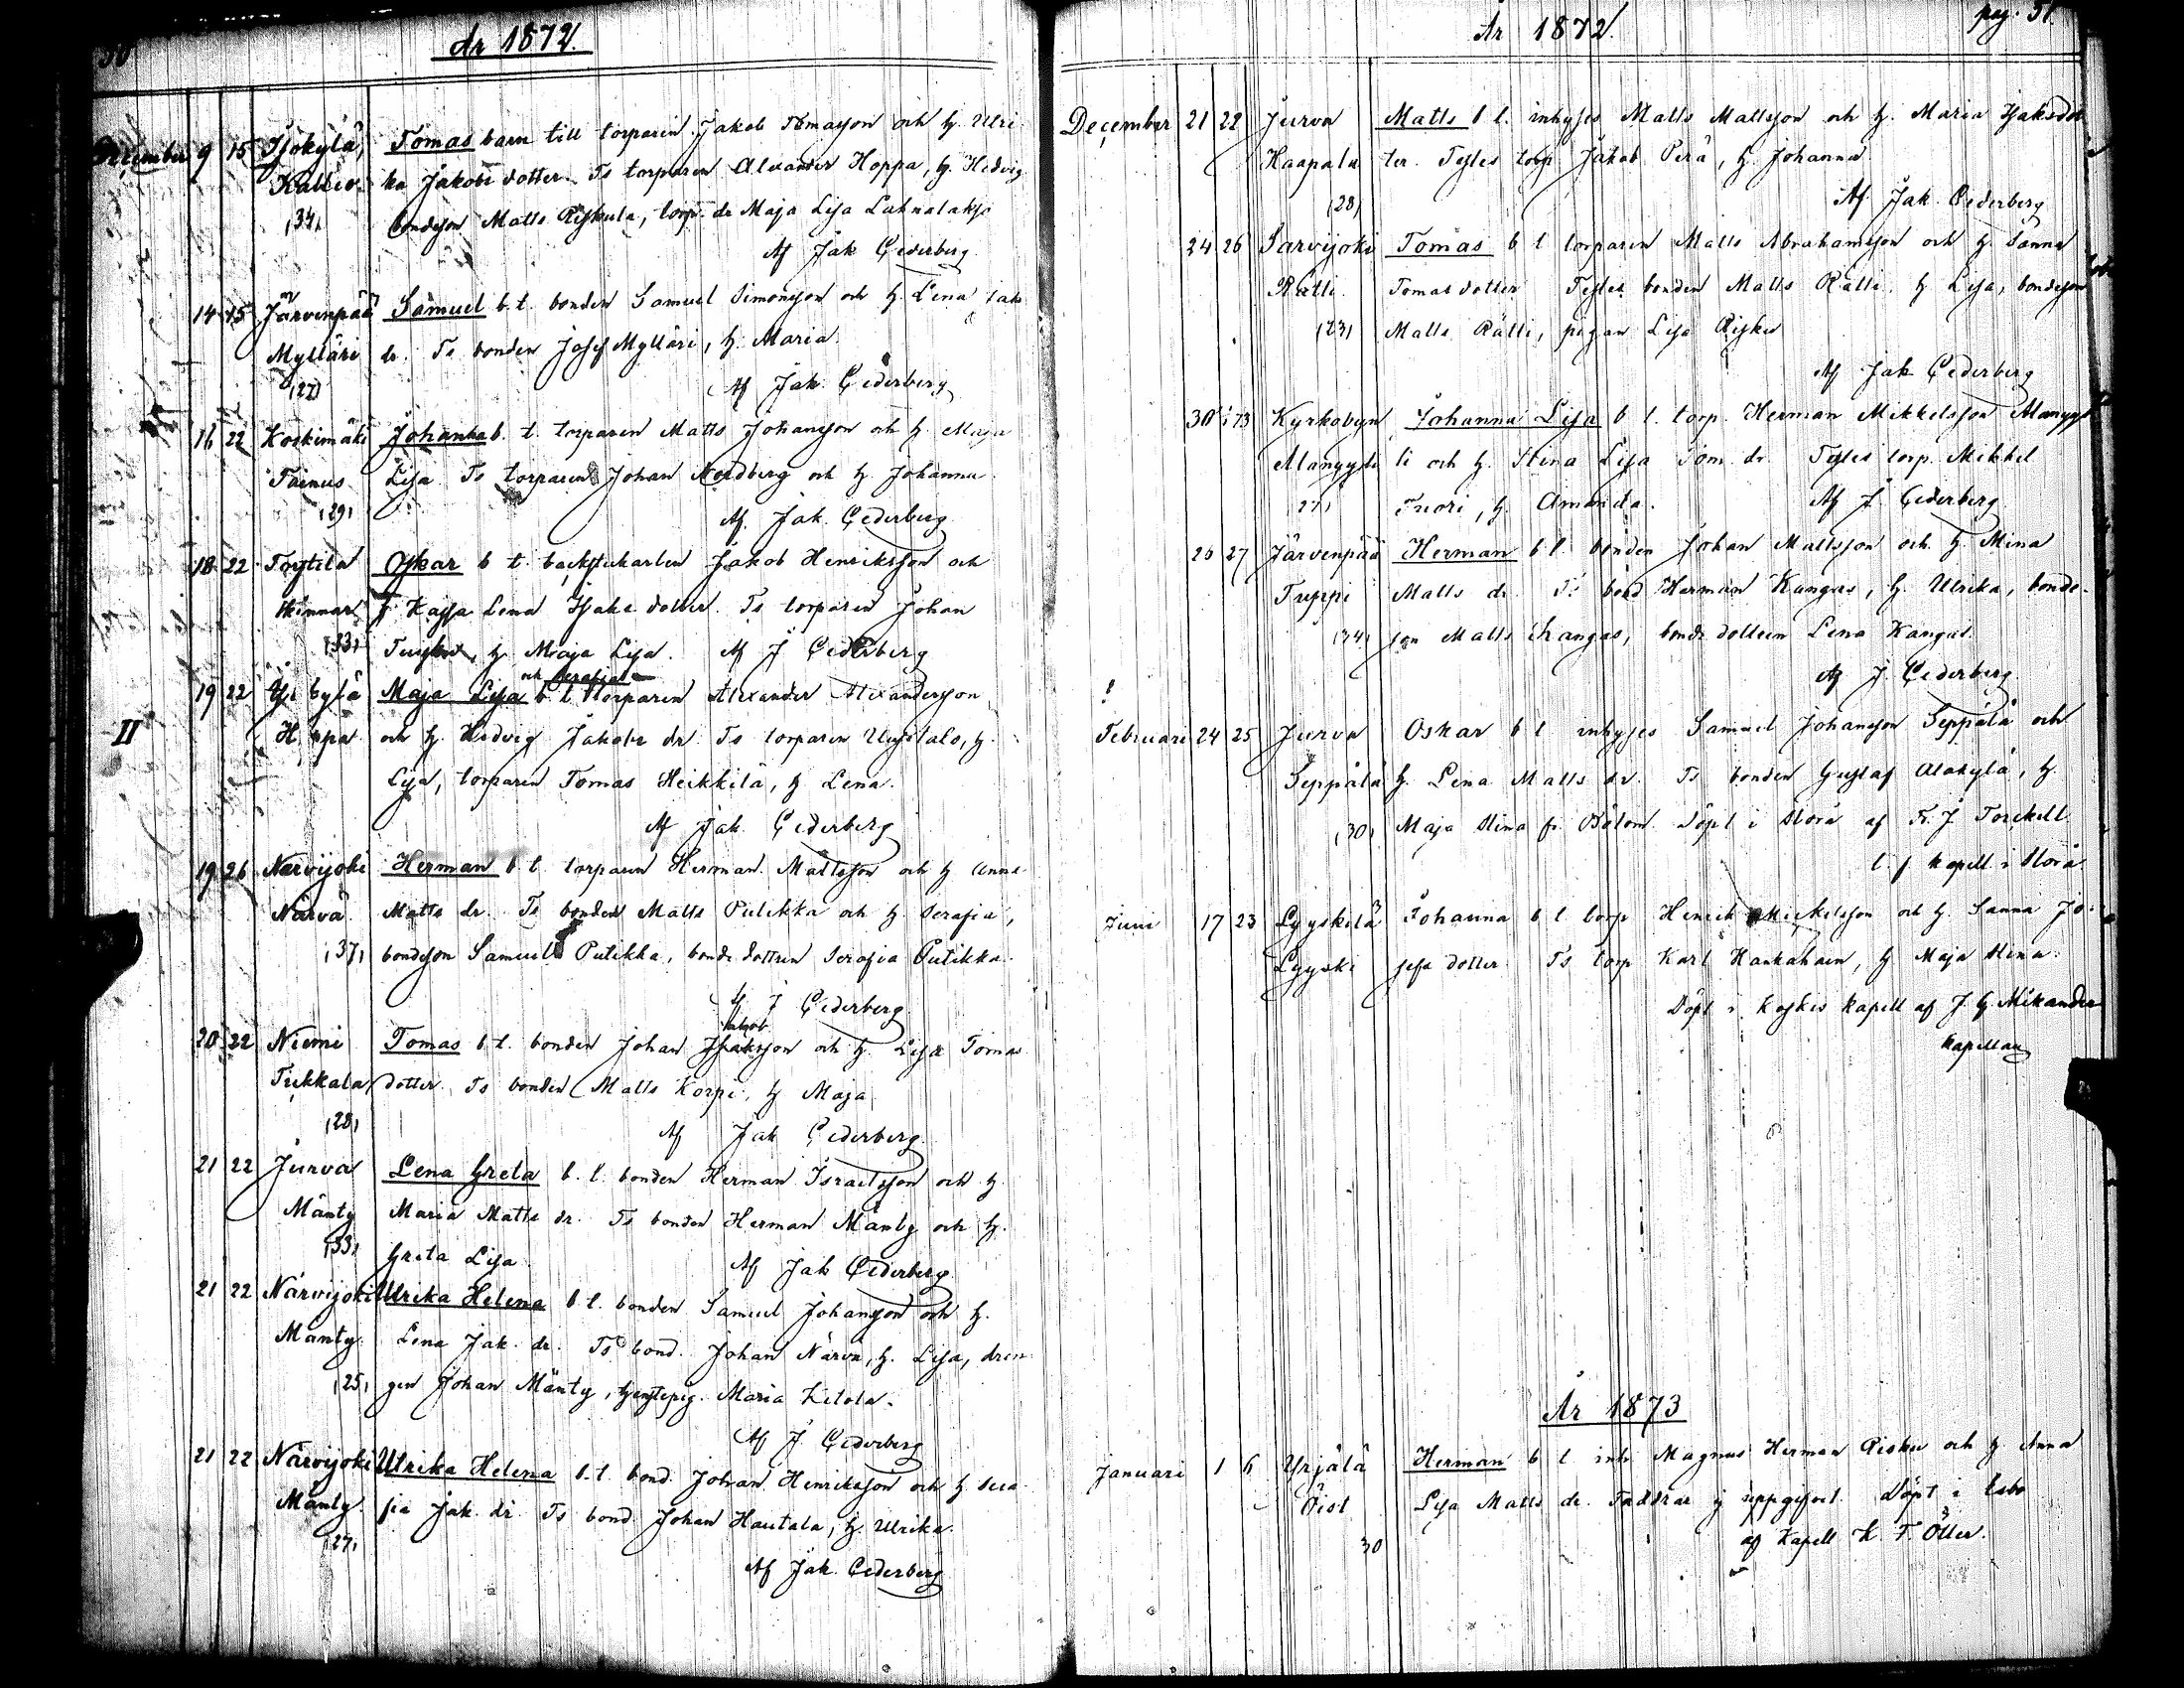 År 1872.
December 9 15 Tomas barn till torparen Jakob Tomasson och h. Ulri
Kallio ka Jakobs dotter. Ts torparen Alexander Hoppa, h. Hedvig
(34) bondeson Matts Riskula, torp. dr Maja Lisa
Af Jak Cederberg
14 15 Järvenpää Samuel b. t. bonden Samuel Simonsson och h. Lena Jak
Mylläri dr. Ts bonden Josef Mylläri, h. Maria.
(27) Af Jak. Cederberg
16 22 Koskimäki Johanna b. t. torparen Matts Johansson och h. Maja
Lisa Ts torparen Johan Nordberg och h. Johanna
(29) Af. Jak. Cederberg
18 22 Oskar b t. backstukarlen Jakob Henriksson och
h Kajsa Lena Isaks dotter. Ts torparen Johan
(33) h Maja Lisa. Af J Cederberg
och Serafia
19 22 Maja Lisa b t torparen Alexander Alexandersson
II och h. Hedvig Jakobs dr. Ts torparen h.
Lisa, torparen Tomas Heikkilä, h Lena.
Af Jak Cederberg
19 26 Närvijoki Herman b t. torparen Herman Mattsson och h Anna
Närvä Matts dr. Ts bonden Matts Putikka och h. Serafia,
(37) bondeson Samuel Putikka, bonde dottren Serafia Putikka.
Af J Cederberg
Jakob
20 22 Niemi Tomas b t. bonden Johan Isaksson och h. Lisa Tomas
Tukkala dotter. Ts bonden Matts Korpi, h Maja
(28) Af Jak Cederberg
21 22 Jurva Lena Greta b. t. bonden Herman Israelsson och h
Mänty Maria Matts dr. Ts bonden Herman Mänty och h.
(33) Greta Lisa Af Jak Cederberg
21 22 Närvijoki Ulrika Helena b t. bonden Samuel Johansson och h.
Mänty Lena Jak. dr. Ts bond. Johan Närvä, h. Lisa, dren
(25) gen Johan Mänty, Maria
Af J Cederberg
21 22 Närvijoki Ulrika Helena b. t. bond. Johan Henriksson och h Sera
Mänty fia Jak. dr. Ts bond Johan Hautala, h. Ulrika.
(27) Af Jak Cederberg
År 1872. pag. 51
December 21 22 Jurva Matts b t. inhyses Matts Mattsson och h. Maria Isaksdot
Haapala ter. Testes torp Jakob Perä, h. Johanna
(28) Af Jak. Cederberg
24 26 Sarvijoki Tomas b t torparen Matts Abrahamsson och h Sanna
Rätti Tomas dotter Testes bonden Matts Rätti h Lisa, bondeson
(23) Matts Rätti, pigan Lisa Risku
Af Jak Cederberg
30 73 Kyrkobyn Johanna Lisa b t. torp. Herman Mikkelsson
och h. Stina Lisa Tom dr. Testes torp. Mikkel
Tuori, h. Amanda. Af J Cederberg
26 27 Järvenpää Herman b t. bonden Johan Mattsson och h. Mina
Tuppi Matts dr. Ts bond Herman Kangas, h. Ulrika, bonde-
(34) son Matts Kangas, bonde dottern Lena Kangas
Af J Cederberg
!
Februari 24 25 Jurva Oskar b t inhyses Samuel Johansson Seppälä och
Seppälä h Lena Matts dr. Ts bonden Gustaf Alakylä, h.
(30) Maja Stina fr Bötom Döpt i Storå af K. J. Torckell
t. f kapell. i Storå
Juni 17 23 Lyyskilä Johanna b t torp Henrik Mickelsson och h. Sanna Jo-
Lyyski sefs dotter Ts torp Karl h Maja Stina.
Döpt i Koskis kapell af J. G. Mikander
kapellan
År 1873
Januari 1 6 Yrjälä Herman b t inh Magnus Herman Risku och h Anna
Öist Lisa Matts dr. Faddrar ej uppgifvet. Döpt i Esbo
30 af Kapell K. F. Öller.